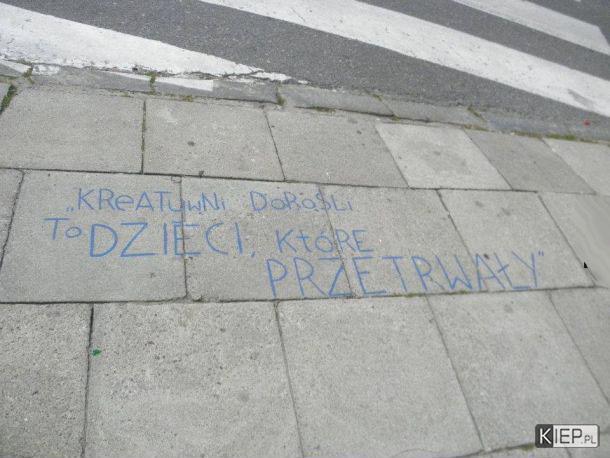 „KReATYWNi DOROŚLi
To DZIECI, KtÓRE
PRZETRWAŁY”
KIEP.PL